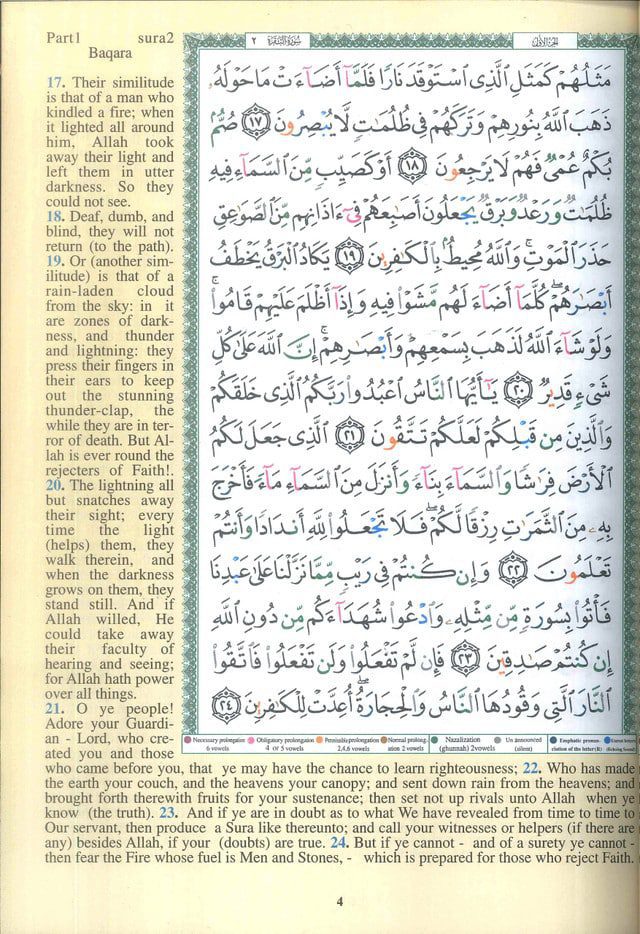 Part1 sura2
Baqara
17. Their similitude
is that of a man who
kindled a fire; when
it lighted all around
him, Allah took
away their light and
left them in utter
darkness. So they
could not see.
18. Deaf, dumb, and
blind, they will not
return (to the path).
19. Or (another sim-
ilitude) is that of a
rain-laden cloud
from the sky: in it
are zones of dark-
ness, and thunder
and lightning: they
press their fingers in
their ears to keep
out the stunning
thunder-clap, the
while they are in ter-
ror of death. But Al-
lah is ever round the
rejecters of Faith!.
20. The lightning all
but snatches away
their sight; every
time the light
(helps) them, they
walk therein, and
when the darkness
grows on them, they
stand still. And if
Allah willed, He
could take away
their faculty of
hearing and seeing;
for Allah hath power
over all things.
21. O ye people!
Adore your Guardi-
an - Lord, who cre-
ated you and those
who came before you, that ye may have the chance to learn righteousness; 22. Who has made
the earth your couch, and the heavens your canopy; and sent down rain from the heavens; and
brought forth therewith fruits for your sustenance; then set not up rivals unto Allah when ye
know (the truth). 23. And if ye are in doubt as to what We have revealed from time to time to
Our servant, then produce a Sura like thereunto; and call your witnesses or helpers (if there are
any) besides Allah, if your (doubts) are true. 24. But if ye cannot - and of a surety ye cannot -
then fear the Fire whose fuel is Men and Stones, - which is prepared for those who reject Faith.
الجزء الأول
سورة البقرة ٢
مَثَلُهُمْ كَمَثَلِ ٱلَّذِى ٱسْتَوْقَدَ نَارًا فَلَمَّآ أَضَآءَتْ مَا حَوْلَهُۥ
ذَهَبَ ٱللَّهُ بِنُورِهِمْ وَتَرَكَهُمْ فِى ظُلُمَٰتٍ لَّا يُبْصِرُونَ ١٧ صُمٌّۢ
بُكْمٌ عُمْىٌ فَهُمْ لَا يَرْجِعُونَ ١٨ أَوْ كَصَيِّبٍ مِّنَ ٱلسَّمَآءِ فِيهِ
ظُلُمَٰتٌ وَرَعْدٌ وَبَرْقٌ يَجْعَلُونَ أَصَٰبِعَهُمْ فِىٓ ءَاذَانِهِم مِّنَ ٱلصَّوَٰعِقِ
حَذَرَ ٱلْمَوْتِ ۚ وَٱللَّهُ مُحِيطٌۢ بِٱلْكَٰفِرِينَ ١٩ يَكَادُ ٱلْبَرْقُ يَخْطَفُ
أَبْصَٰرَهُمْ ۖ كُلَّمَآ أَضَآءَ لَهُم مَّشَوْا۟ فِيهِ وَإِذَآ أَظْلَمَ عَلَيْهِمْ قَامُوا۟ ۚ
وَلَوْ شَآءَ ٱللَّهُ لَذَهَبَ بِسَمْعِهِمْ وَأَبْصَٰرِهِمْ ۚ إِنَّ ٱللَّهَ عَلَىٰ كُلِّ
شَىْءٍ قَدِيرٌ ٢٠ يَٰٓأَيُّهَا ٱلنَّاسُ ٱعْبُدُوا۟ رَبَّكُمُ ٱلَّذِى خَلَقَكُمْ
وَٱلَّذِينَ مِن قَبْلِكُمْ لَعَلَّكُمْ تَتَّقُونَ ٢١ ٱلَّذِى جَعَلَ لَكُمُ
ٱلْأَرْضَ فِرَٰشًا وَٱلسَّمَآءَ بِنَآءً وَأَنزَلَ مِنَ ٱلسَّمَآءِ مَآءً فَأَخْرَجَ
بِهِۦ مِنَ ٱلثَّمَرَٰتِ رِزْقًا لَّكُمْ ۖ فَلَا تَجْعَلُوا۟ لِلَّهِ أَندَادًا وَأَنتُمْ
تَعْلَمُونَ ٢٢ وَإِن كُنتُمْ فِى رَيْبٍ مِّمَّا نَزَّلْنَا عَلَىٰ عَبْدِنَا
فَأْتُوا۟ بِسُورَةٍ مِّن مِّثْلِهِۦ وَٱدْعُوا۟ شُهَدَآءَكُم مِّن دُونِ ٱللَّهِ
إِن كُنتُمْ صَٰدِقِينَ ٢٣ فَإِن لَّمْ تَفْعَلُوا۟ وَلَن تَفْعَلُوا۟ فَٱتَّقُوا۟
ٱلنَّارَ ٱلَّتِى وَقُودُهَا ٱلنَّاسُ وَٱلْحِجَارَةُ ۖ أُعِدَّتْ لِلْكَٰفِرِينَ ٢٤
Necessary prolongation Obligatory prolongation Permissible prolongation Normal prolong- Nazalization Un announced Emphatic pronun-
6 vowels 4 or 5 vowels 2,4,6 vowels ation 2 vowels (ghunnah) 2vowels (silent) ciation of the letter(R)
4